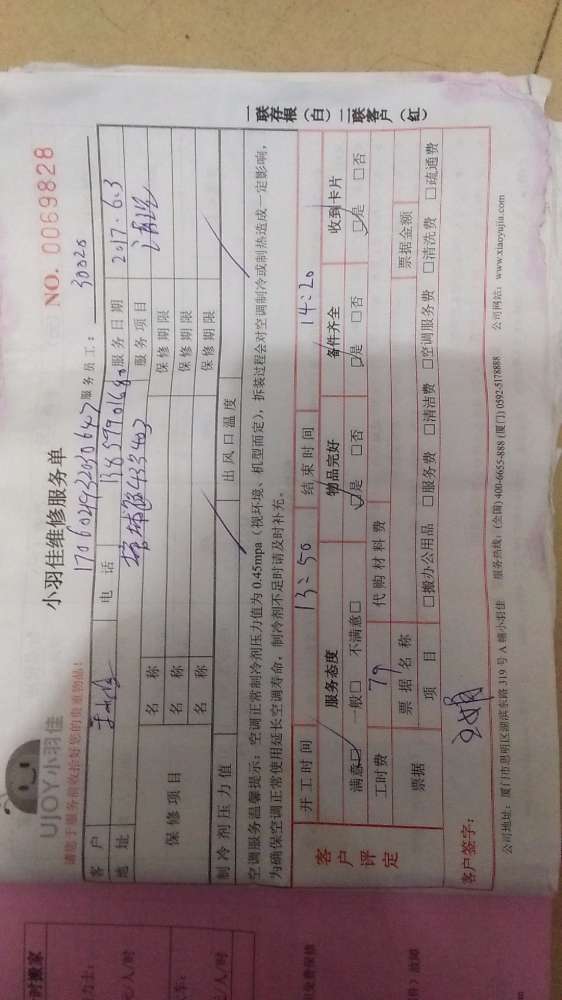 UJOY小羽佳
小羽佳维修服务单
NO. 0069828
请您于服务前收拾好您的贵重物品！
服务员工： 30020
客 户
电 话
服务日期 2017.6.3
地 址
服务项目
保修项目
名 称
保修期限
名 称
保修期限
名 称
保修期限
制冷剂压力值
出风口温度
空调服务温馨提示：空调正常制冷剂压力值为 0.45mpa（视环境、机型而定），拆装过程会对空调制冷或制热造成一定影响，
为确保空调正常使用延长空调寿命，制冷剂不足时请及时补充。
开工时间 13:50 结束时间 14:20
客户评定
服务态度 物品完好 备件齐全 收到卡片
满意☑ 一般□ 不满意□ ☑是 □否 ☑是 □否 ☑是 □否
工时费 79 代购材料费
票据
票据名称
票据金额
项 目
□搬办公用品 □服务费 □清洁费 □空调服务费 □清洗费 □疏通费
客户签字：
公司地址：厦门市思明区湖滨东路 319 号 A 幢小羽佳 服务热线：(全国) 400-6655-888 (厦门) 0592-5178888 公司网站：www.xiaoyujia.com
一联存根（白）二联客户（红）
时搬家
元/人/时
元/人/时